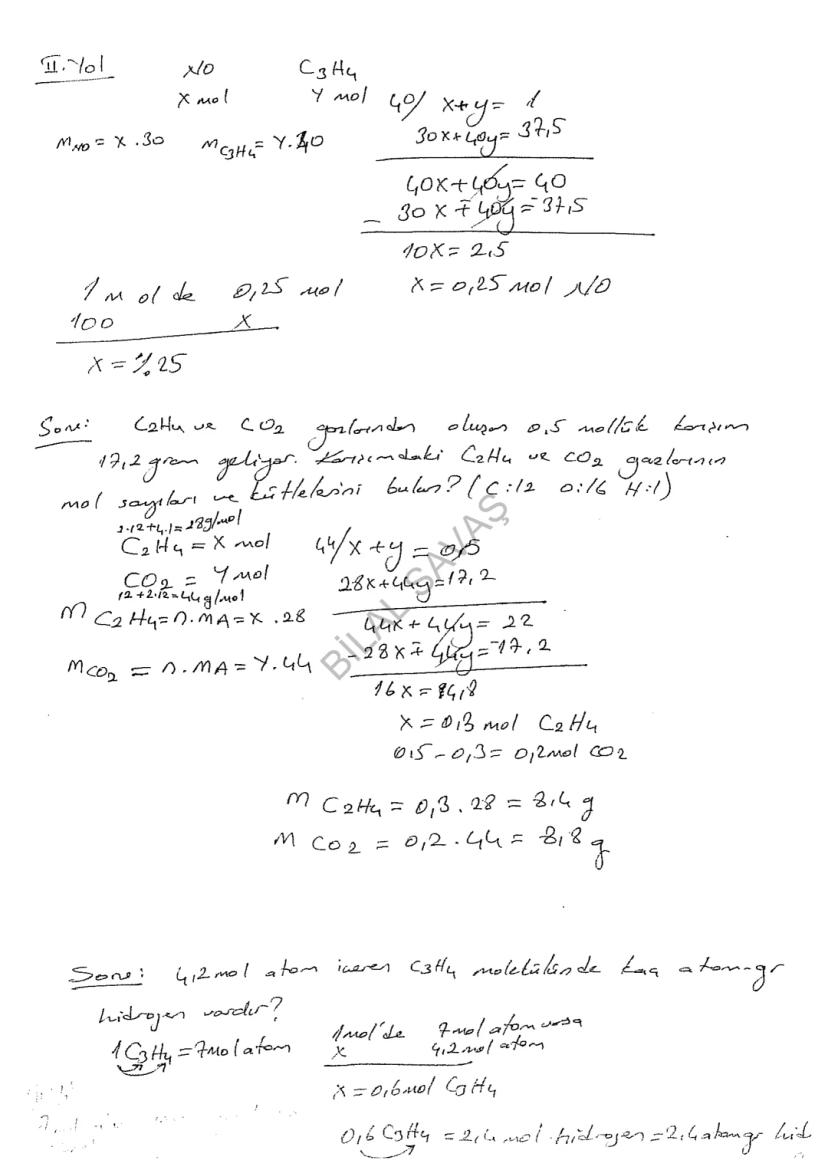 II. Yol NO C3H4
X mol Y mol 40/ x+y= 1
mNO = X.30 mC3H4 = Y.40 30x+40y= 37,5
40x+40y= 40
- 30x ∓ 40y = 37,5
10x = 2,5
1 mol de 0,25 mol X = 0,25 mol NO
100 X
X = %25
Soru: C2H4 ve CO2 gazlarından oluşan 0,5 mollük karışım
17,2 gram geliyor. Karışımdaki C2H4 ve CO2 gazlarının
mol sayıları ve kütlelerini bulun? (C:12 O:16 H:1)
2.12+4.1=28g/mol
C2H4 = X mol 44/x+y = 0,5
CO2 = Y mol 28x+44y=17,2
12+2.12=44g/mol
m C2H4=n.MA=X.28 44x+44y= 22
mCO2 = n.MA=Y.44 -28x∓44y=-17,2
16x=4,8
X=0,3 mol C2H4
0,5-0,3= 0,2mol CO2
m C2H4 = 0,3 . 28 = 8,4 g
m CO2 = 0,2 . 44 = 8,8 g
BİLAL SAVAŞ
Soru: 4,2 mol atom içeren C3H4 molekülünde kaç atom-gr
hidrojen vardır?
1C3H4=7mol atom 1mol'de 7mol atom varsa
X 4,2mol atom
X=0,6mol C3H4
0,6 C3H4 = 2,4 mol hidrojen=2,4 atomgr hid